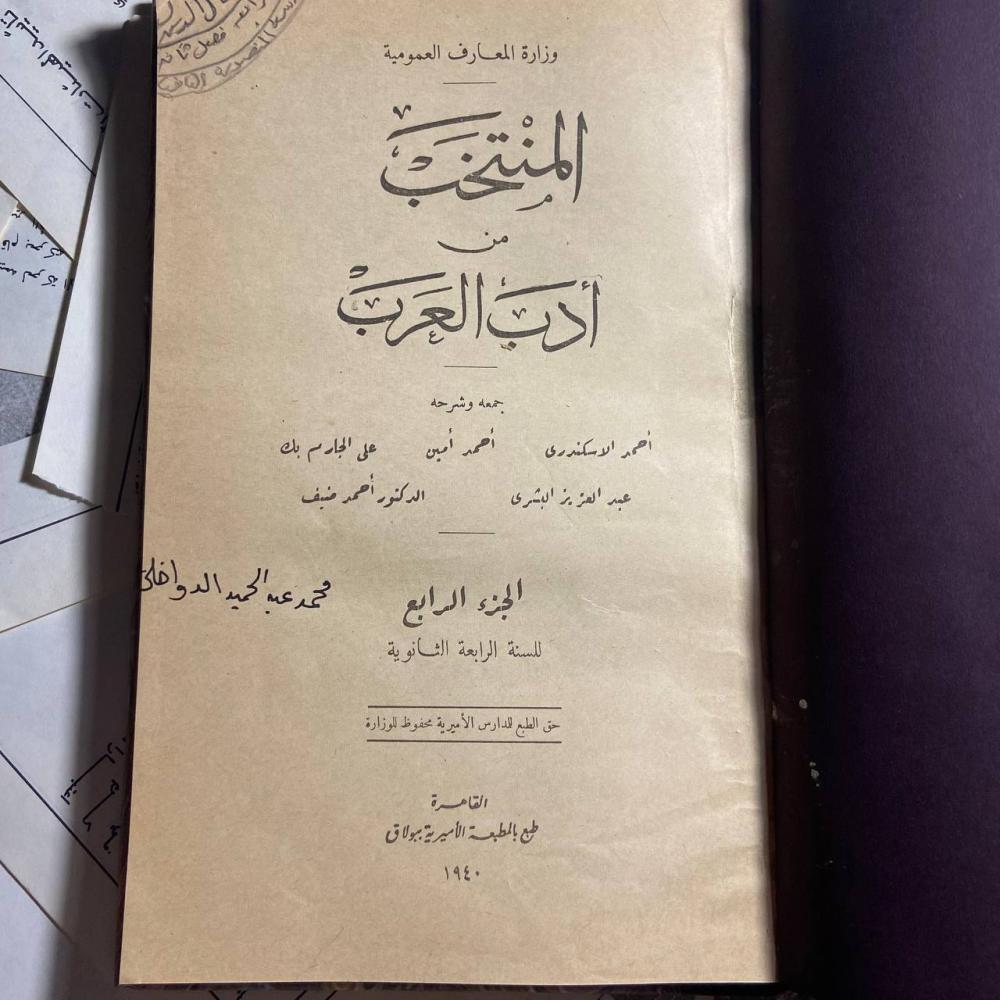 وزارة المعارف العمومية
المنتخب
من
أدب العرب
جمعه وشرحه
أحمد الاسكندرى أحمد أمين على الجارم بك
عبد العزيز البشرى الدكتور أحمد ضيف
محمد عبد الحميد الدواخلى
الجزء الرابع
للسنة الرابعة الثانوية
حق الطبع للمدارس الأميرية محفوظ للوزارة
القاهرة
طبع بالمطبعة الأميرية ببولاق
١٩٤٠